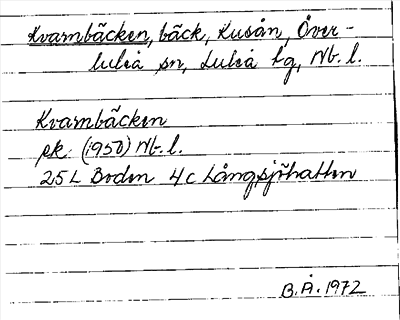 Kvarnbäcken, bäck, Kusån, Över-
luleå sn, Luleå tg, Nb. l.
Kvarnbäcken
ek. (1950) Nb. l.
25 L Boden 4 c Långsjöhatten
B.Å. 1972